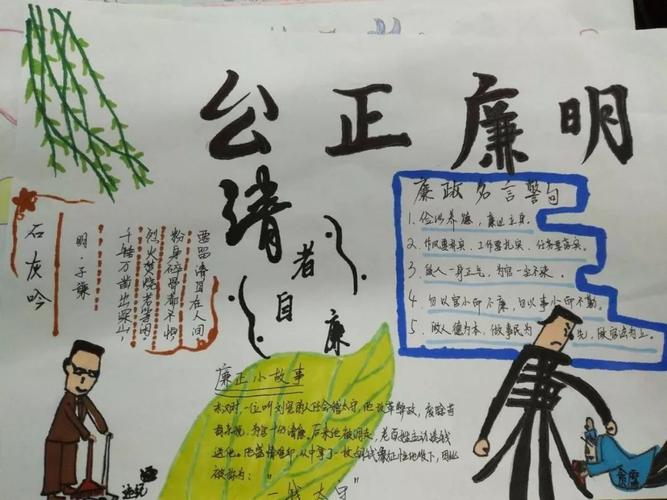 公正廉明
清者自廉
石灰吟
明·于谦
千锤万凿出深山，
烈火焚烧若等闲。
粉身碎骨都不怕
要留清白在人间
廉政名言警句
1、俭以养廉，廉以立身。
2、作风要务实，工作要扎实，任务要落实。
3、做人一身正气，为官一尘不染。
4、自以官小所不廉，自以事小所不勤。
5、做人德为本，做事民为先，做官法为上。
廉正小故事
东汉时，一位叫刘宠的人任会稽太守，他改革弊政，废除苛
捐杂税，为官十分清廉。后来他被调走，老百姓主动凑钱
送他。他盛情难却，从中拿了一枚铜钱象征性地收下，因此
被称为：
“一钱太守”
廉
贪腐